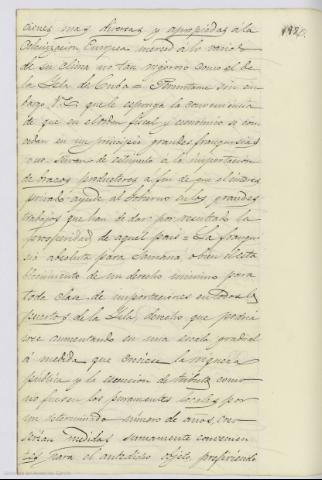 ciones mas diversas y apropiadas á la
colonizacion Europea merced á lo vario
de su clima no tan rigoroso como el de
la Isla de Cuba = Permitame sin em
bargo V.E. que le esponga la conveniencia
de que en el orden fiscal y economico se con
cedan en un principio grandes franquicias
que sirvan de estimulo a la importacion
de brazos productores a fin de que el interes
privado ayude al Gobierno en los grandes
trabajos que han de dar por resultado la
prosperidad de aquel pais = La franqui
cia absoluta para Samaná, o bien el esta
blecimiento de un derecho minimo para
toda clase de importaciones en todos los
puertos de la Isla, derecho que podria
irse aumentando en una escala gradual
á medida que creciese la riqueza
publica y la esencion de tributos como
no fuesen los puramente locales por
un determinado número de años, cre
serian medidas sumamente convenien
tes para el antedicho objeto, prefiriendo